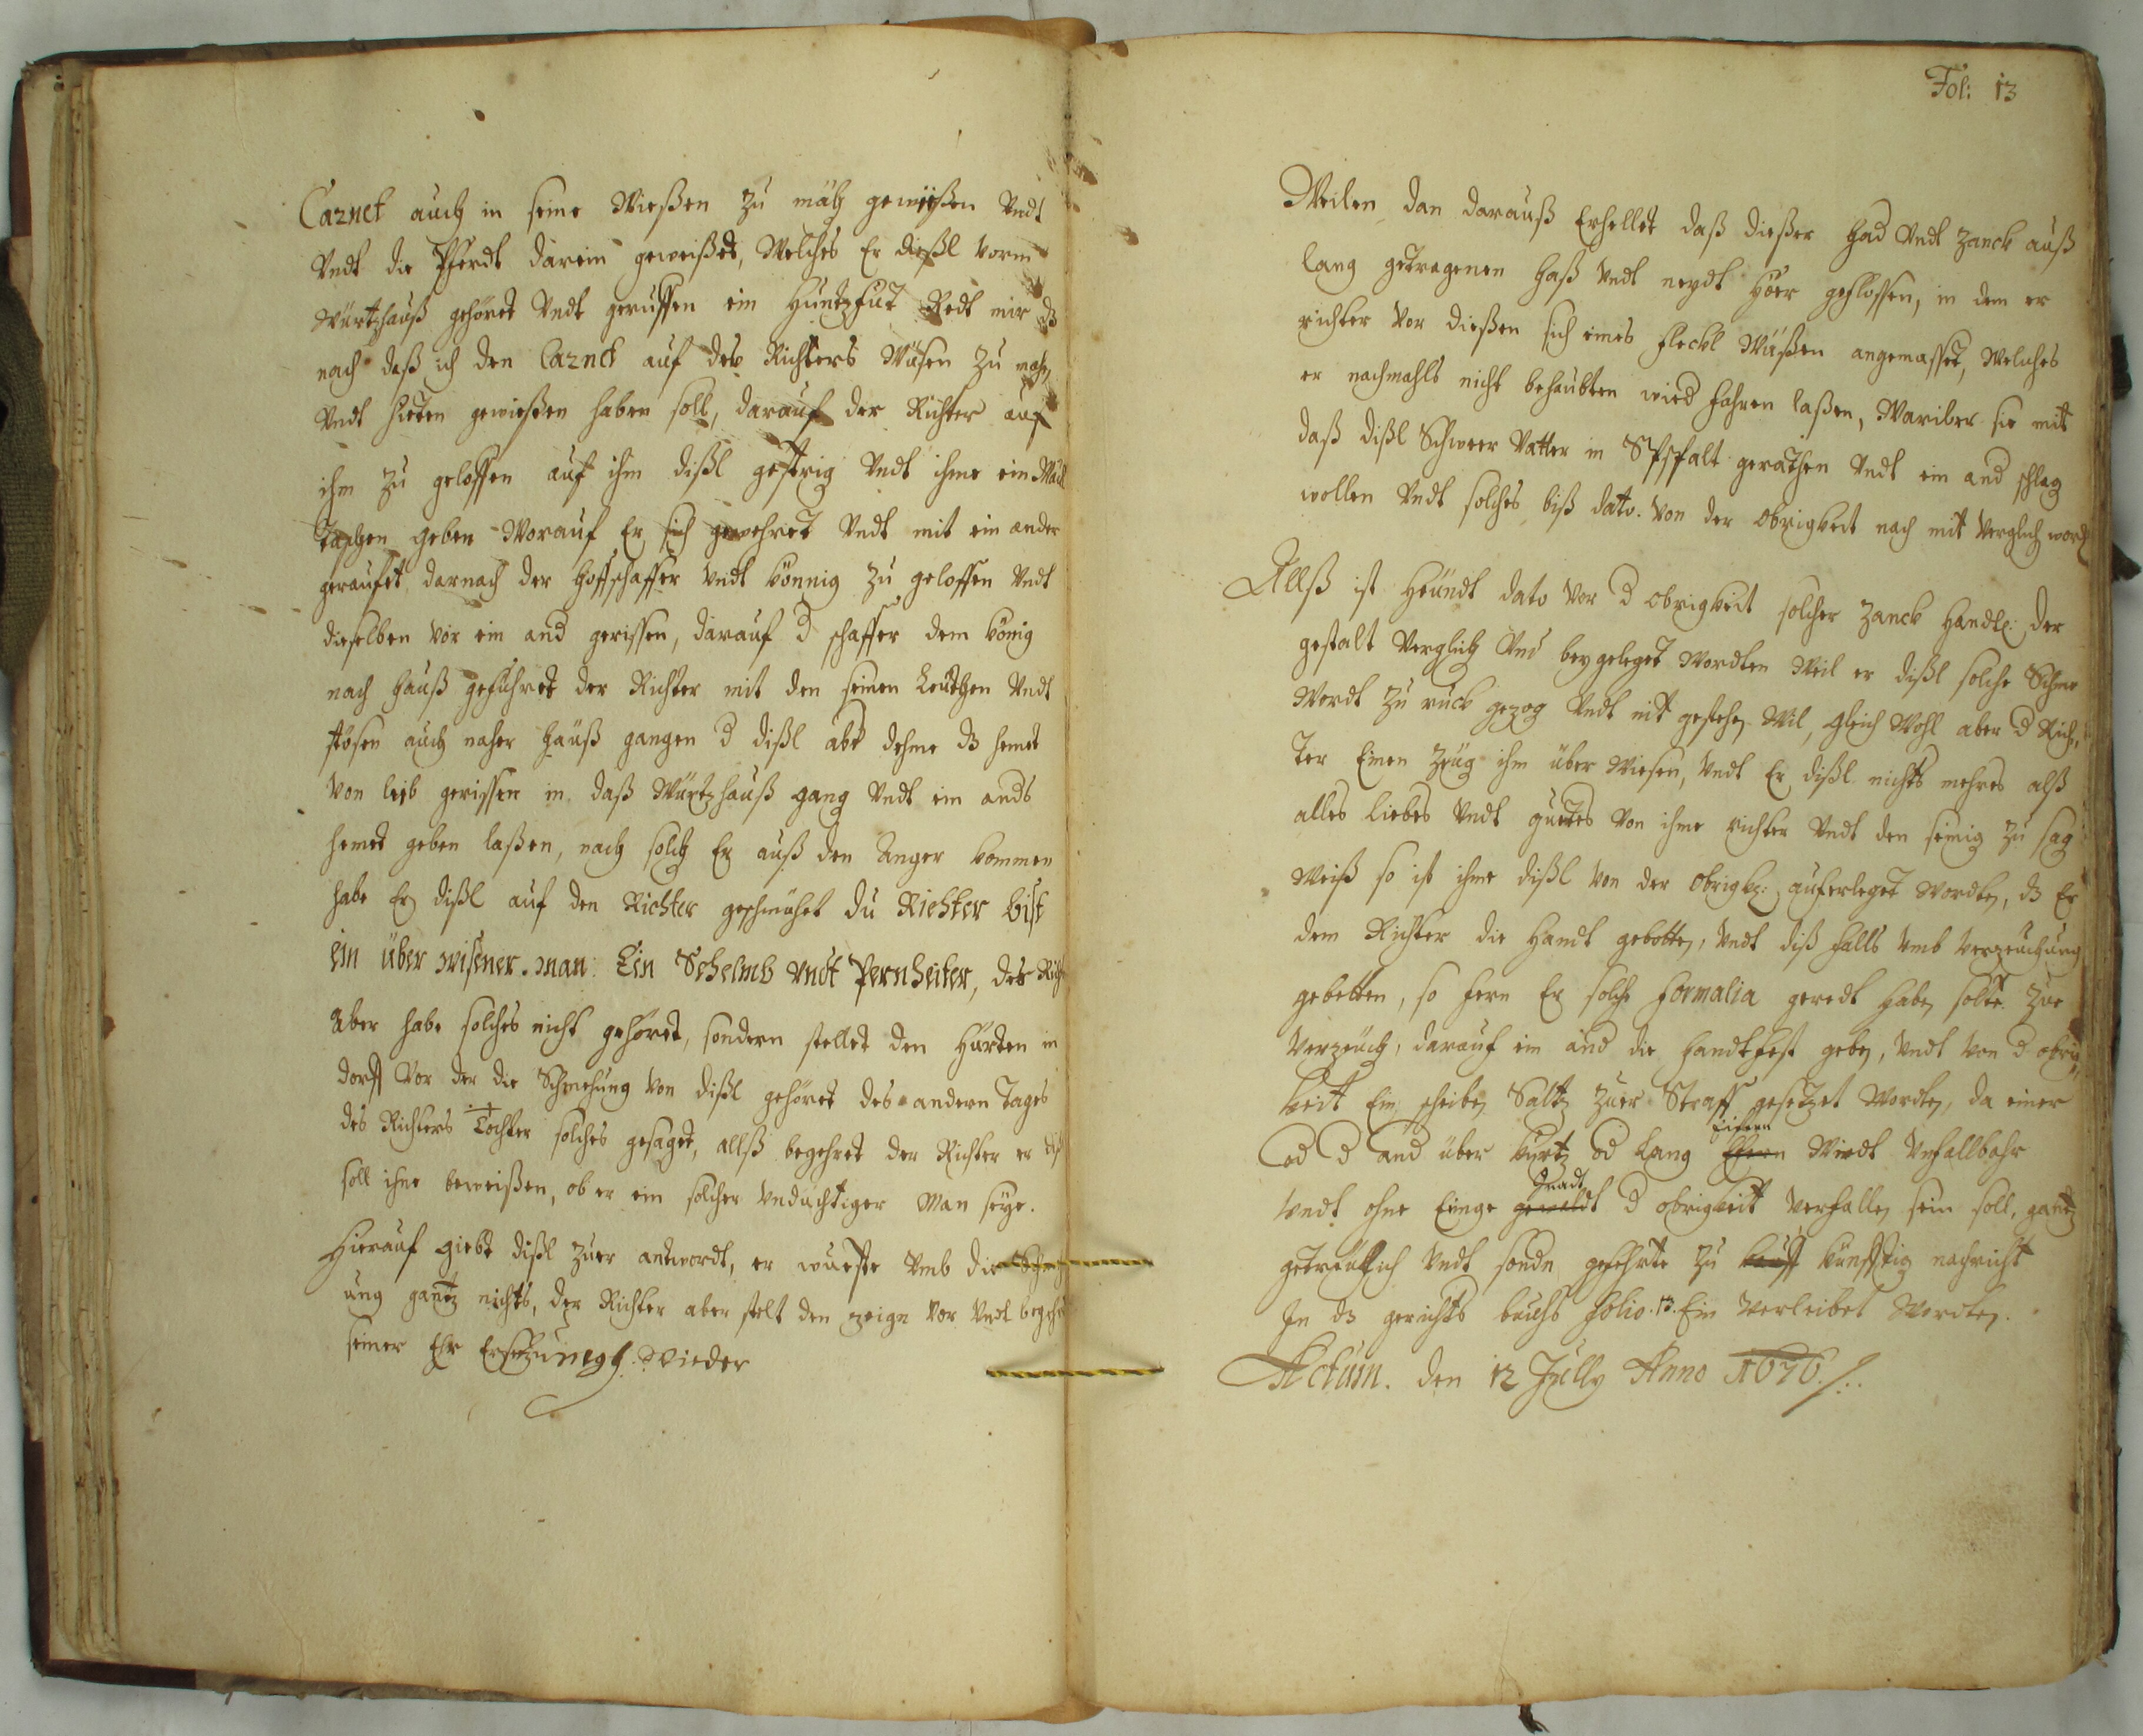 Carnet auch in seine Wießen zu mäh gewißen Vndt
Vndt die Pferdt darein geweißet, Welches Er dißl vorm
Würtzhauß gehöret Vndt geruffen ein Huntzfut Redt mir dz
nach daß ich den Carnet auf des Richters Wüsen zu mehe
Vndt hüten gewießen haben soll, darauf der Richter auf
ihm zu geloffen auf ihm dißl gestrig Vndt ihme ein Maul
taschen geben Worauf Er sich gewehret Vndt mit ein ander
geraufet darnach der hoffschaffer Vndt könnig zu geloffen Vndt
dieselben Vor ein and gerissen, darauf d schaffer dem könig
nach hauß geführet der Richter mit den seinen Leuthen Vndt
auch naher hauß gangen d dißl abe dehme dz hemet
Von leib gerissen in daß Würtzhauß gang Vndt ein ands
hemet geben laßen, nach solch Er auß den Anger kommen
habe Er dißl auf den Richter geschmühet du Richter bist
ein über wisener. man: Ein Schelmb Vndt Pernheiter, der Richt
aber habe solches nicht gehöret, sondern stellet den Hürten in
dorff Vor der die Schmehung von dißl gehöret des andern Tages
des Richters Tochter solches gesaget, allß begehret der Richter er dißl
soll ihne beweißen, ob er ein solcher Vndüchtiger Man seye.
Hierauf giebt dißl zuer antwordt, er wueste Vmb die Schmeh
ung gantz nichts, der Richter aber stelt den zeign Vor Vndt begehrt
seiner Ehr Ersetzungh. Wieder
Fol: 13
Weilen dan darauß Erhellet daß dießer Had Vndt Zanck auß
lang getragenen haß Vndt neydt Höer gefloßen, in dem er
richter Vor dießen sich eines fleckl Wüßen angemasset, Welches
er nachmahls nicht behaubten wird fahren laßen, Wariber sie mit
daß dißl Schweer Vatter in Spspalt gerathen Vndt ein and schlag
wollen Vndt solches biß dato. Von der obrigkeit nach mit Verglich word
Allß ist Heündt dato Vor d obrigkeit solcher Zanck Handl: der
gestalt Verglich Vnd beygeleget Wordten Weil er dißl solche Schme
Wordt zu ruck gezog Vndt nit gestehe Wil, gleich Wohl aber d Rich,
ter Einen Zeug ihm über Wiesen, Vndt Er dißl nichts mehres alß
alles liebes Vndt guetes Von ihme richter Vndt den seinig zu sag
Weiß so ist ihme dißl Von der Obrigk: auferleget Wordten, dz Er
dem Richter die Handt gebotte, Vndt diß falls Vmb Verzeuchung
gebetten, so fern Er solche formalia geredt habe solte. Zue
Verzeüch, darauf ein and die handtfest gebe, Vndt Von d obrig,
keit Ein scheiben Saltz zuer Straff gesetzet Wordten, da einer
od d and über kurtz od lang Eifern Wirdt Vnfallbahr
Vndt ohne Einge gnadt d obrigkeit Verfallen sein soll, gantz
getreülich Vndt sonde gefehrte zu künfftig nachricht
In dz gerichts buchs folio. 13. Ein Verleibet Wordten.
Actum. den 12 Jully Anno 1676